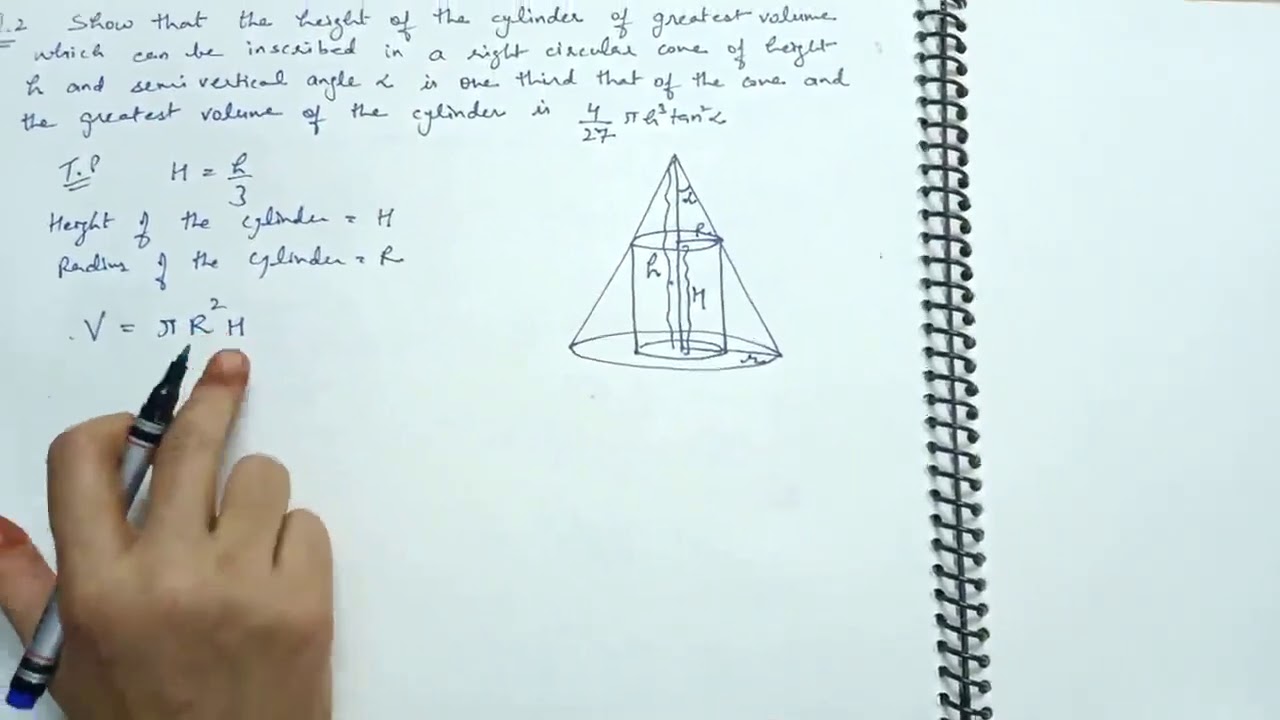 .2 Show that the height of the cylinder of greatest volume
which can be inscribed in a right circular cone of height
h and semi vertical angle α is one third that of the cone and
the greatest volume of the cylinder is 4/27 πh³tan²α
T.P H = h/3
Height of the cylinder = H
Radius of the cylinder = R
V = πR²H
α
R
h
H
r